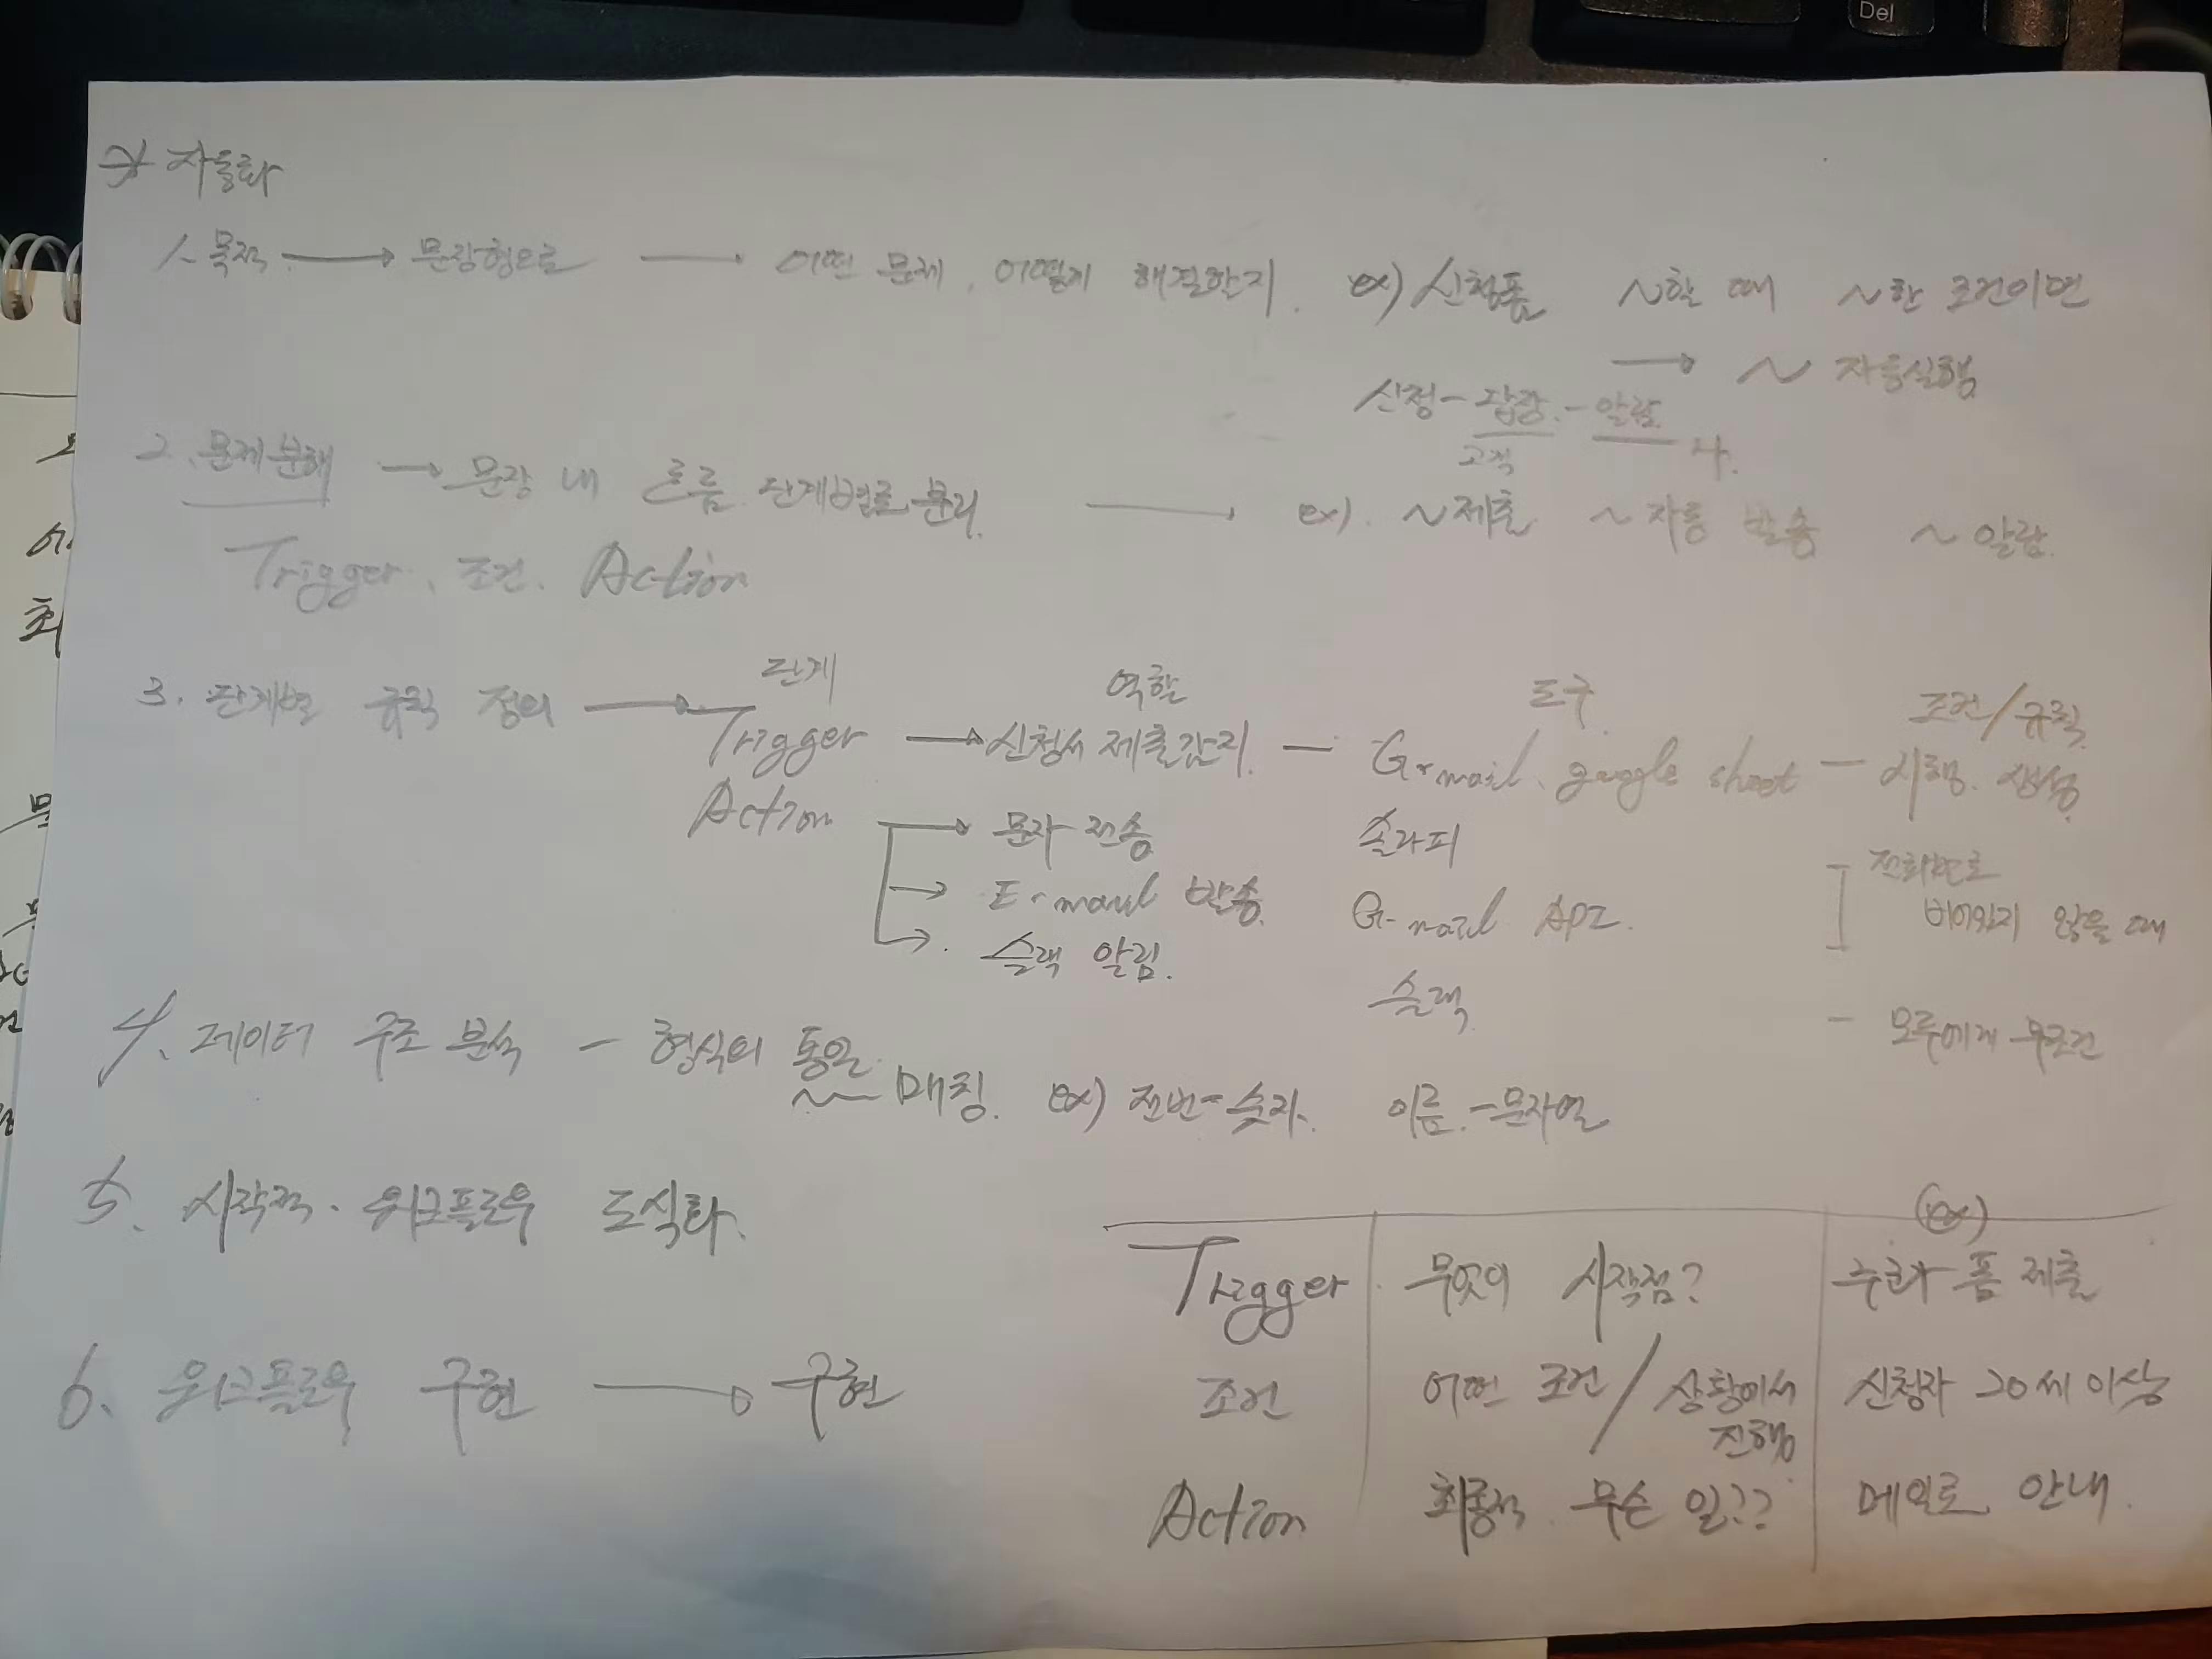 * 자동화
1. 목적 → 문장형으로 → 어떤 문제, 어떻게 해결할지. ex) 신청폼 ~할 때 ~한 조건이면
→ ~ 자동실행
신청 - 답장. - 알림.
고객 나.
2. 문제분해 → 문장 내 흐름 단계별로 분리. → ex). ~제출 ~자동 발송 ~알람.
Trigger. 조건. Action
단계 역할 도구 조건/규칙
3. 단계별 규칙 정의 → Trigger → 신청서 제출감지. - G-mail. google sheet - 시행.
Action → 문자 전송 솔라피 전화번호
→ E-mail 발송. G-mail API. 비어있지 않을 때
→ 슬랙 알림. 슬랙 - 모두에게 무조건
4. 데이터 구조 분석 - 형식의 통일
매칭. ex) 전번 - 숫자. 이름. - 문자열
5. 시각적. 워크플로우 도식화.
6. 워크플로우 구현 → 구현
(ex)
Trigger 무엇이 시작점? 누군가 폼 제출
조건 어떤 조건 / 상황에서 진행 신청자 20세 이상
Action 최종적 무슨 일?? 메일로 안내.
Del